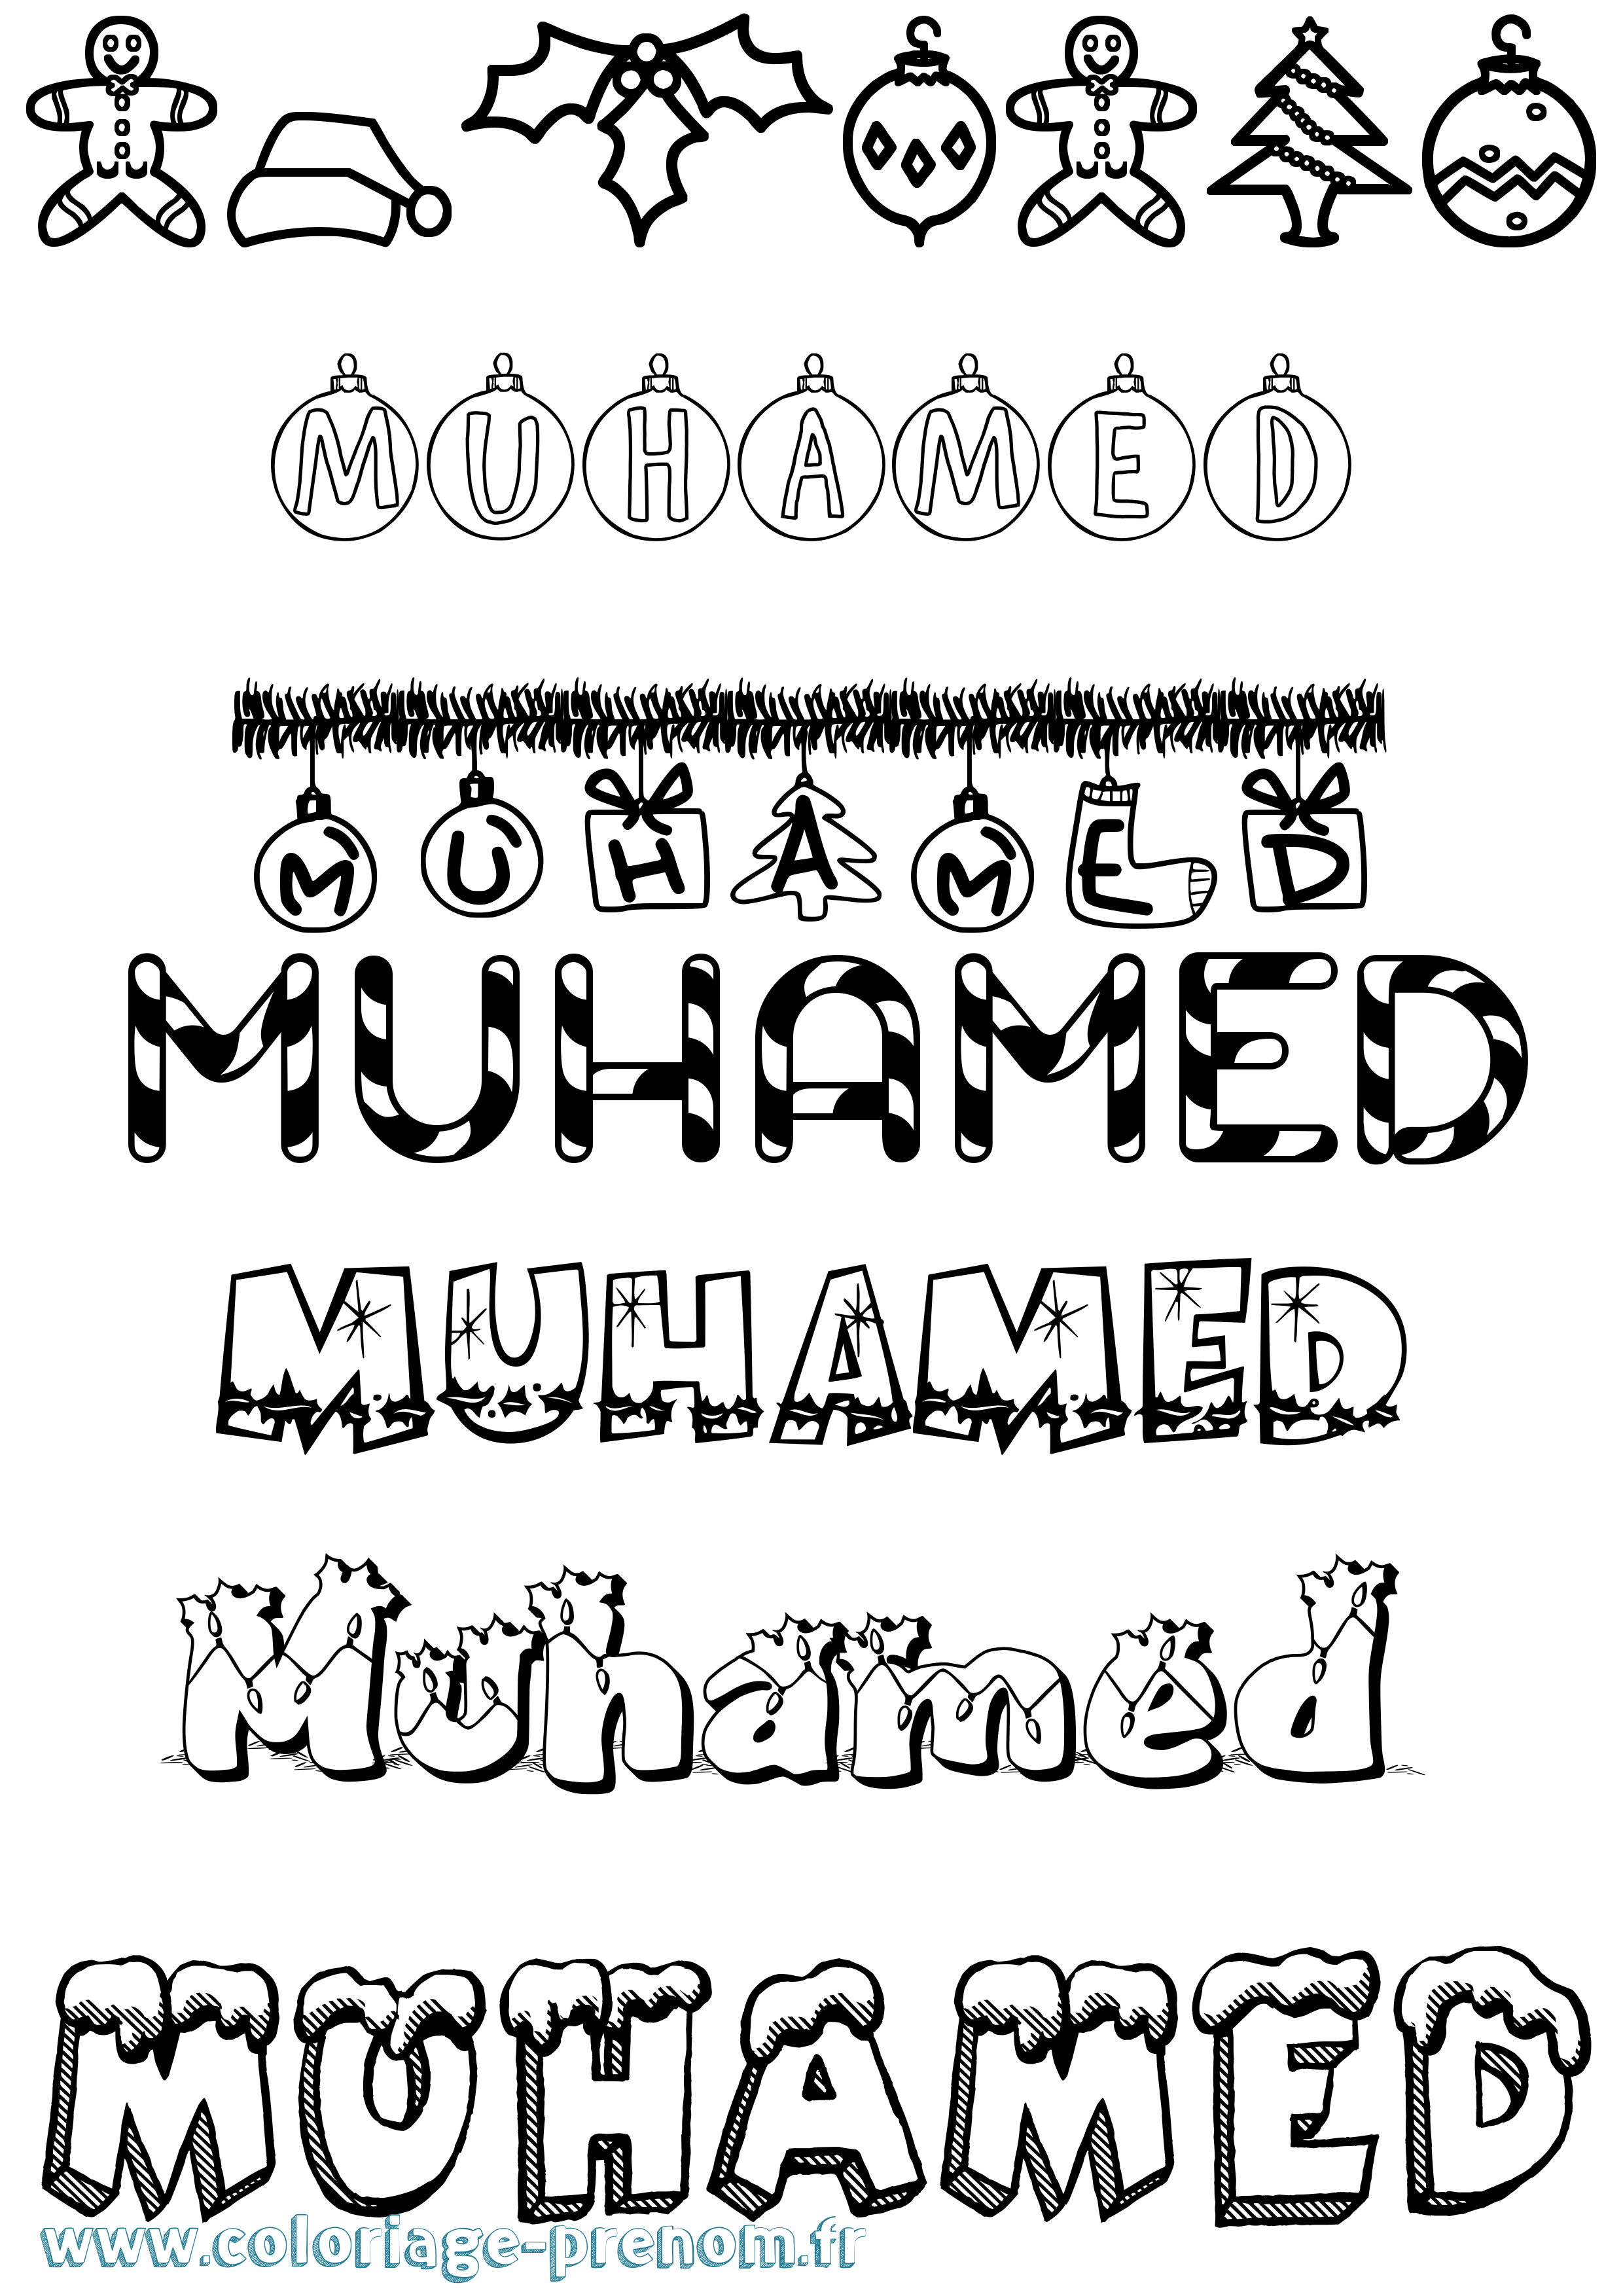 MUHAMED
MUHAMED
MUHAMED
MUHAMED
Muhamed
MUHAMED
www.coloriage-prenom.fr